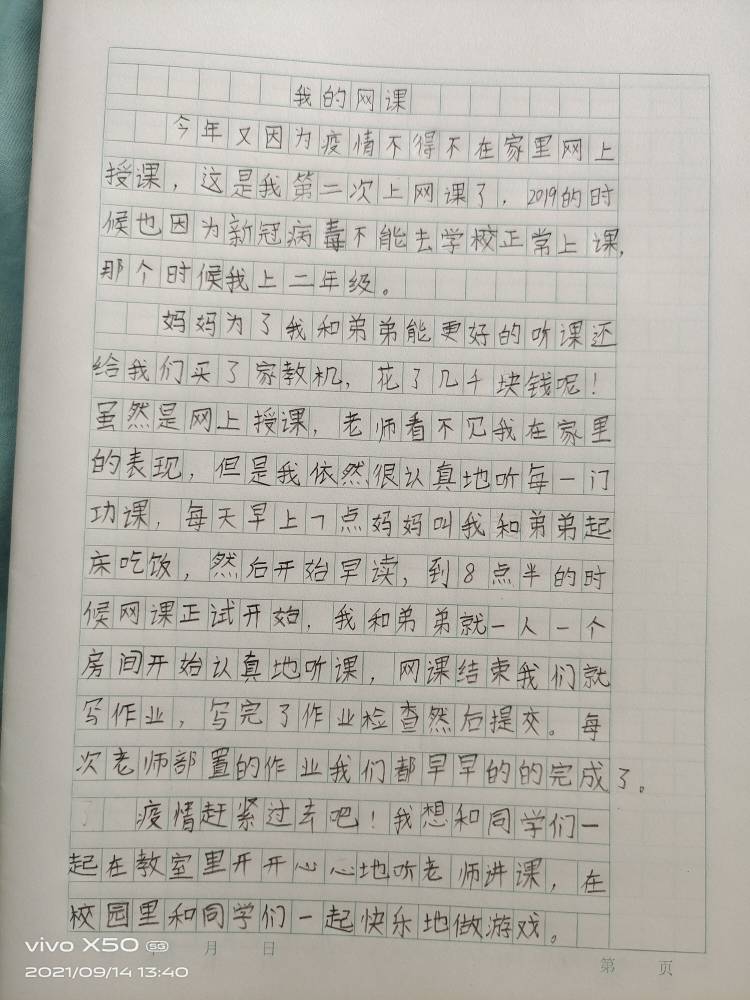 我的网课
今年又因为疫情不得不在家里网上
授课，这是我第二次上网课了，2019的时
候也因为新冠病毒不能去学校正常上课，
那个时候我上二年级。
妈妈为了我和弟弟能更好的听课还
给我们买了家教机，花了几千块钱呢！
虽然是网上授课，老师看不见我在家里
的表现，但是我依然很认真地听每一门
功课，每天早上7点妈妈叫我和弟弟起
床吃饭，然后开始早读，到8点半的时
候网课正试开始，我和弟弟就一人一个
房间开始认真地听课，网课结束我们就
写作业，写完了作业检查然后提交。每
次老师部置的作业我们都早早的的完成了。
疫情赶紧过去吧！我想和同学们一
起在教室里开开心心地听老师讲课，在
校园里和同学们一起快乐地做游戏。
年 月 日
第 页
vivo X50 5G
2021/09/14 13:40